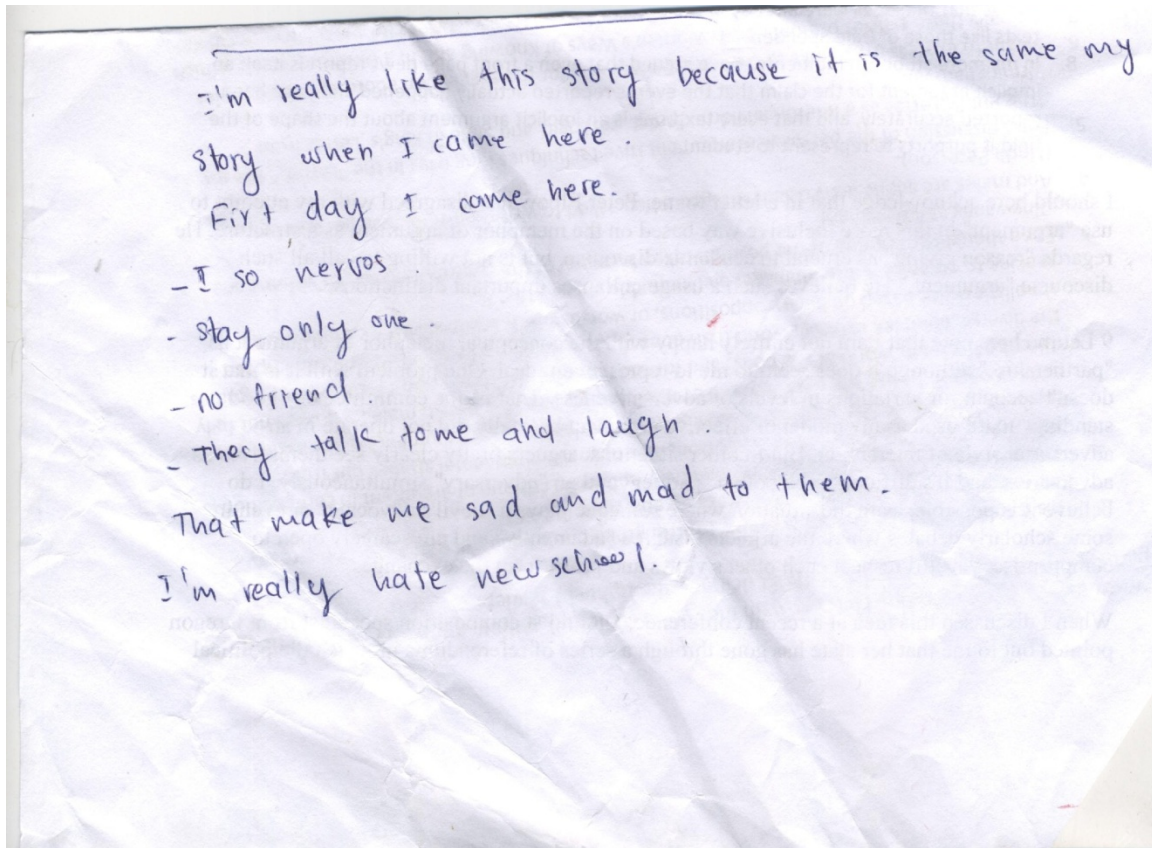 I'm really like this story because it is the same my
story when I came here.
First day I came here.
- I so nervos.
- stay only one.
- no friend
- They talk to me and laugh.
That make me sad and mad to them.
I'm really hate new school.